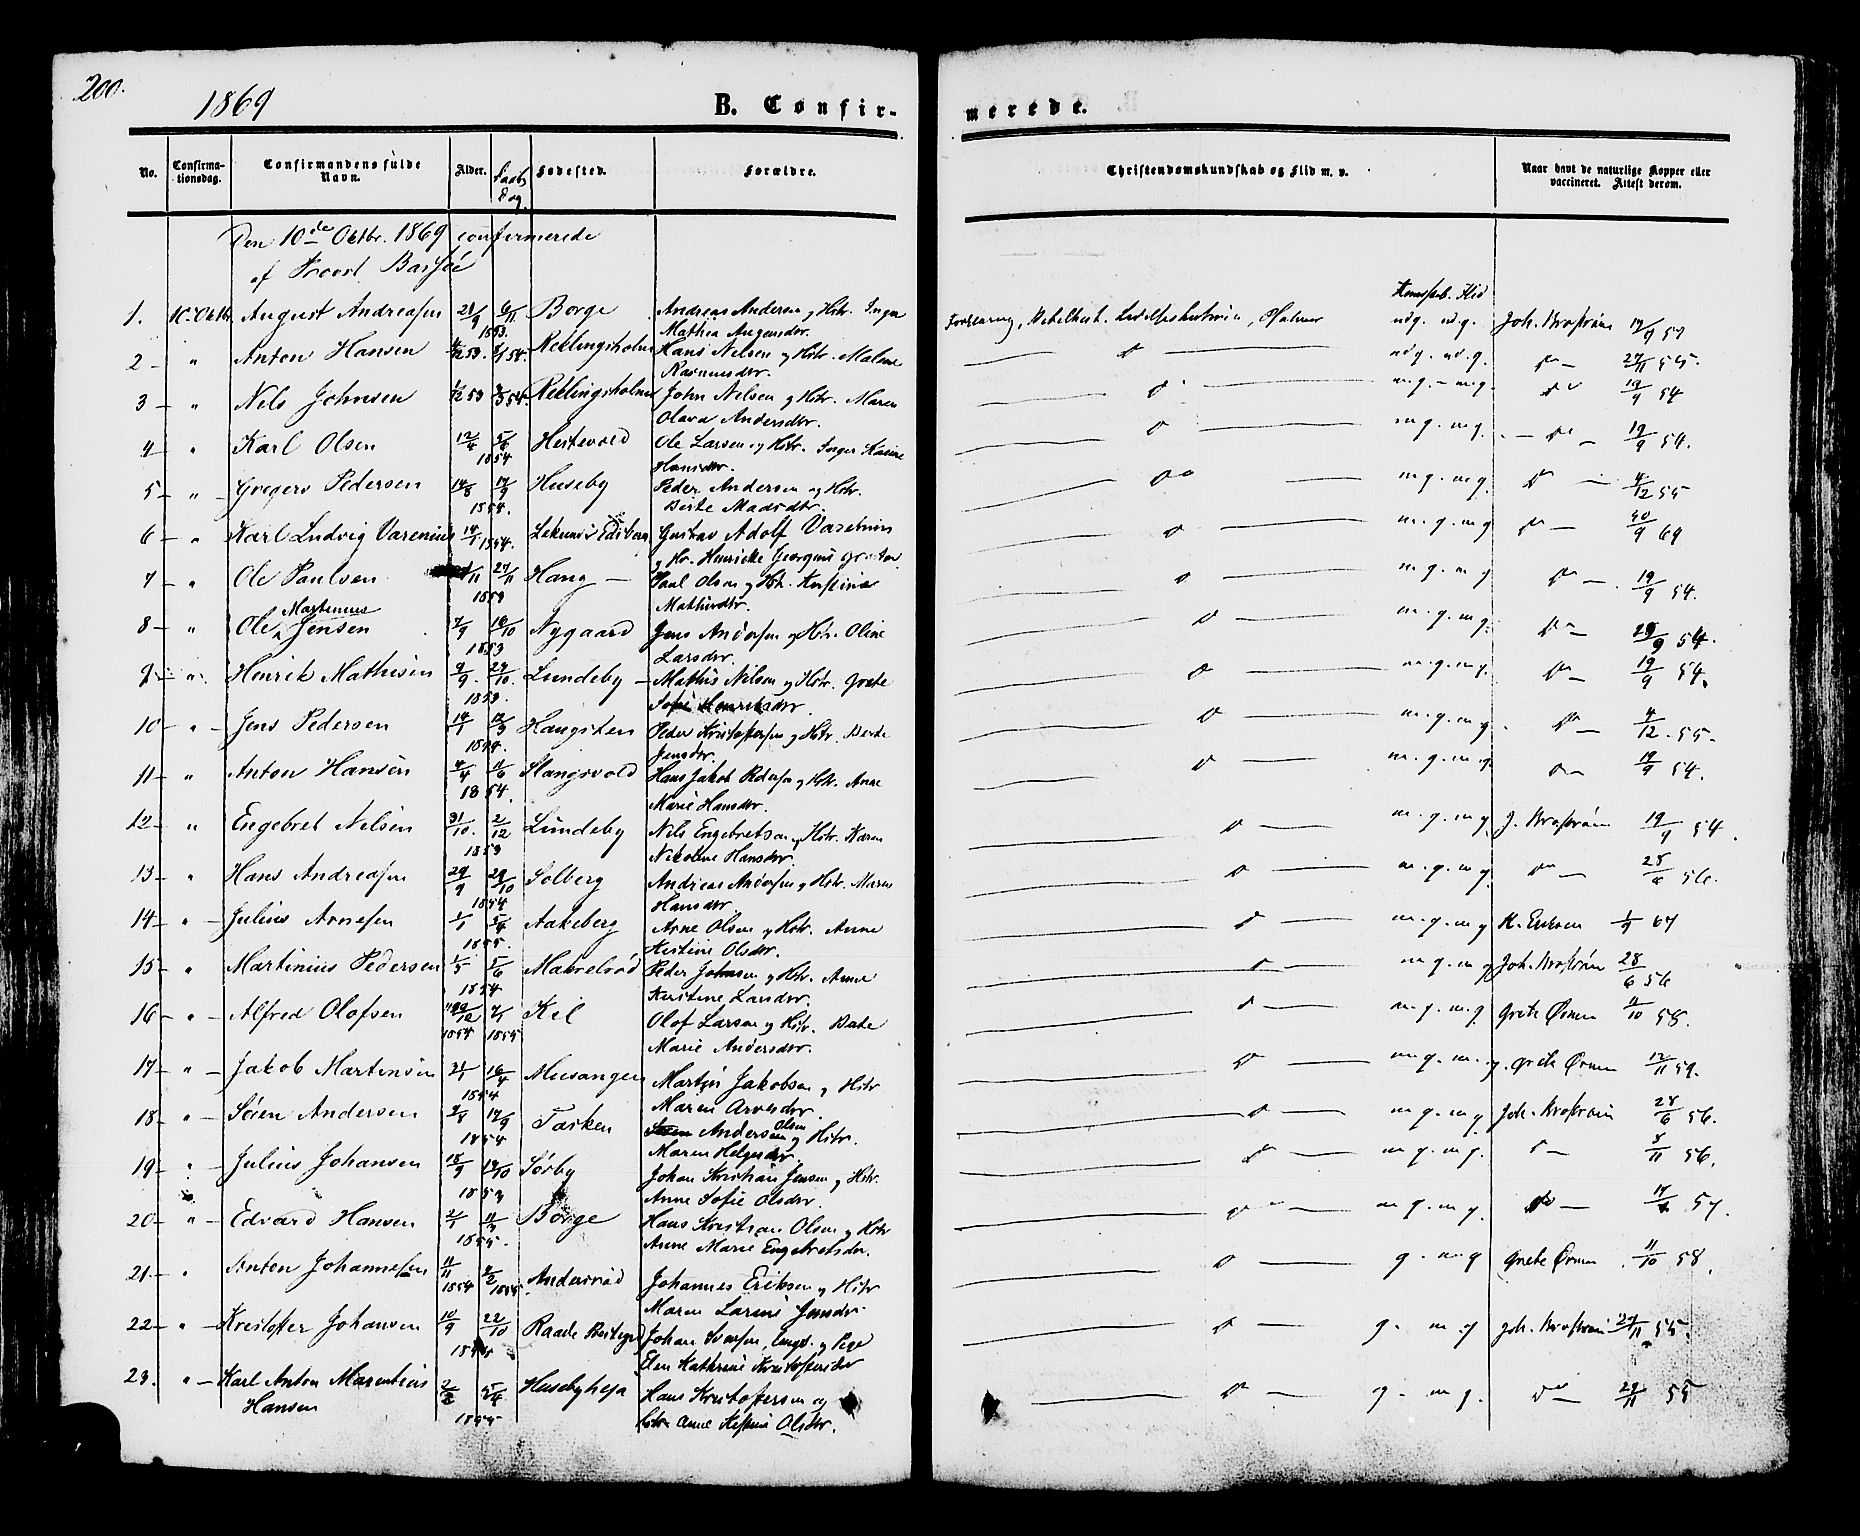 200.
1869
B. Confir-
merede.
No.
Confirma-
tionsdag.
Confirmandens fulde
Navn.
Alder.
Daabs
Dag
Fødested.
Forældre.
Christendomskundskab og Flid m. v.
Naar havt de naturlige Kopper eller
vaccineret. Attest derom.
Den 10de Oktbr. 1869 confirmerede
af Provst
Kundskab. Flid
1. 10. Oktbr. August Andreasen 1853. Borge Andreas Andersen og Hstr. Inger
Mathea
Forklaring, Bibelhist. Salmer udg. udg. 57
2 " Anton Hansen 53. 54. Reklingsholm Hans Nilsen og Hstr. Malene
Rasmusdtr.
udg. ud.g. 27/11 55.
3 — " Nils Johnsen 53 54. Reklingsholm John Nilsen og Hstr. Maren
Olava Andersdtr.
m.g. – m.g. 19/9 54
4 — " Karl Olsen 12/4 5/6 1854 Hestevold Ole Larsen og Hstr. Inger Karine
Hansdtr.
m.g. m.g. 19/9 54.
5 — " Gregers Pedersen 14/8 17/9 1854. Huseby Peder Andersen og Hstr.
Berte Madsdtr.
m.g. m.g. 4/12 55
6 — " Karl Ludvig Varenius 14/1 1854. Gustav Adolf Varenius
og Hr. Henrikke Georgine
m.g. m.g 69
7 — " Ole Paulsen 27/11 1853 Haug — Paul Olsen og Hstr.
Mathisdtr.
m.g. m g 19/9 54.
8 — " Ole Martinius Jensen 7/9 16/10 1853 Nygaard Jens Andersen og Hstr. Oline
Larsdtr.
m.g. m.g. 54.
9 — " Henrik Mathisen 9/9. 29/10. 1853. Lundeby — Mathis Nilsen og Hstr. Grete
Sofie Henriksdtr.
m.g. m.g. 19/9 54.
10 — " Jens Pedersen 14/1 12/3 1854. Haugsten Peder Kristoffersen og Hstr. Berte
Jensdtr.
m.g. m g. 4/12. 55.
11 — " Anton Hansen 4/4 11/6 1854. Slangsvold Hans Jakob Pedersen og Hstr. Anne
Marie Hansdtr.
m.g. m.g. 19/9 54.
12 — " Engebret Nilsen 31/10. 2/12 1853 Lundeby Nils Engebretsen og Hstr. Karen
Nikoline Hansdtr.
m.g. m g. 19/9 54.
13 — " Hans Andreasen 29/9 29/10 1854 Solberg Andreas Andersen og Hstr. Maren
Hansdtr.
m.g. m g. 28/6 56.
14 — " Julius Arnesen 1/1 5/4 1855. Aakeberg Arne Olsen og Hstr. Anne
Kirstine Olsdtr.
m.g. m g K. Eriksen 67
15 — " Martinius Pedersen 1/5 5/6 1854 Makrelrød Peder Johnsen og Hstr. Anne
Kirstine Larsdtr.
m g. m g 28/6 56
16 — " Alfred Olafsen 1854 7/1 1855 Kil Olof Larsen og Hstr. Berte
Marie Andersdtr.
m g. m g Grete Ørmen 11/10 58.
17 — " Jakob Martinsen 16/4 1854 Musangen Martin Jakobsen og Hstr
Maren Arnesdtr.
m g. m. g. Grete Ørmen 12/11 59.
18 — " Søren Andersen 2/8 17/9 1854 Tasken Anders Olsen og Hstr.
Maren Helgesdtr.
m g. m g 28/6 56.
19 — " Julius Johansen 18/9 19/10 1853 Sørby Johan Kristian Jensen og Hstr.
Anne Sofie Olsdtr.
m g. m g. 8/11 56.
20 — " Edvard Hansen 2/1 11/3 1855. Borge Hans Kristian Olsen og Hstr
Anne Marie Engebretsdtr.
m g. m g. 57.
21 — " Anton Johannesen 11/11 1854 2/2 1855 Andersrød Johannes Eriksen og Hstr
Maren Larine Jensdtr
g. m g Grete Ørmen 11/10 58.
22 — " Kristoffer Johansen 10/9 22/10 Raade Johan Svensen, Ungk. og Pige
Elen Kathrine Kristoffersdtr
g. m. g 27/11 55.
23. " — Karl Anton Marentius
Hansen 1855 Husebyheja Hans Kristoffersen og
Hstr Anne Kirstine Olsdtr.
g. m g. 29/11 55